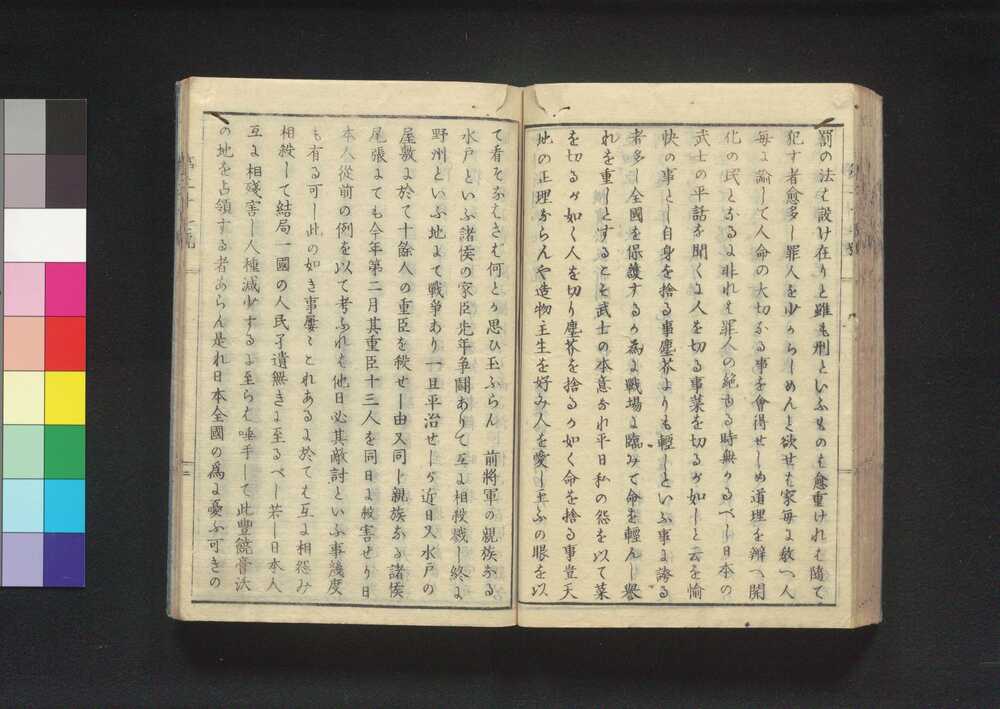 罰の法も設け在りと雖も刑といふものも愈重ければ隨て
犯す者愈多し罪人を少からしめんと欲せば家毎に敎へ人
毎に諭して人命の大切なる事を會得せしめ道理を辨へ開
化の民となるに非れば罪人の絶ゆる時無かるべし日本の
武士の平話を聞くに人を切る事菜を切るが如しと云を愉
快の事とし自身を捨る事塵芥よりも輕しといふ事に誇る
者多し全國を保護するが為に戰場に臨みて命を輕んじ譽
れを重しとするこそ武士の本意なれ平日私の怨を以て菜
を切るが如く人を切り塵芥を捨るが如く命を捨る事豈天
地の正理ならんや造物主生を好み人を愛し玉ふの眼を以
て看そなはさば何とか思ひ玉ふらん 前將軍の親族なる
水戸といふ諸侯の家臣先年爭鬪ありて互に相殺戮し終に
野州といふ地にて戰爭あり一旦平治せしが近日又水戸の
屋敷に於て十餘人の重臣を殺せし由又同じ親族なる諸侯
尾張にても今年第二月其重臣十三人を同日に殺害せり日
本人從前の例を以て考ふれば他日必其敵討といふ事幾度
も有る可し此の如き事屢〻これあるに於ては互に相怨み
相殺して結局一國の人民孑遺無きに至るべし若し日本人
互に相殘害し人種減少するに至らば唾手して此豐饒膏沃
の地を占領する者あらん是れ日本全國の爲に憂ふ可きの